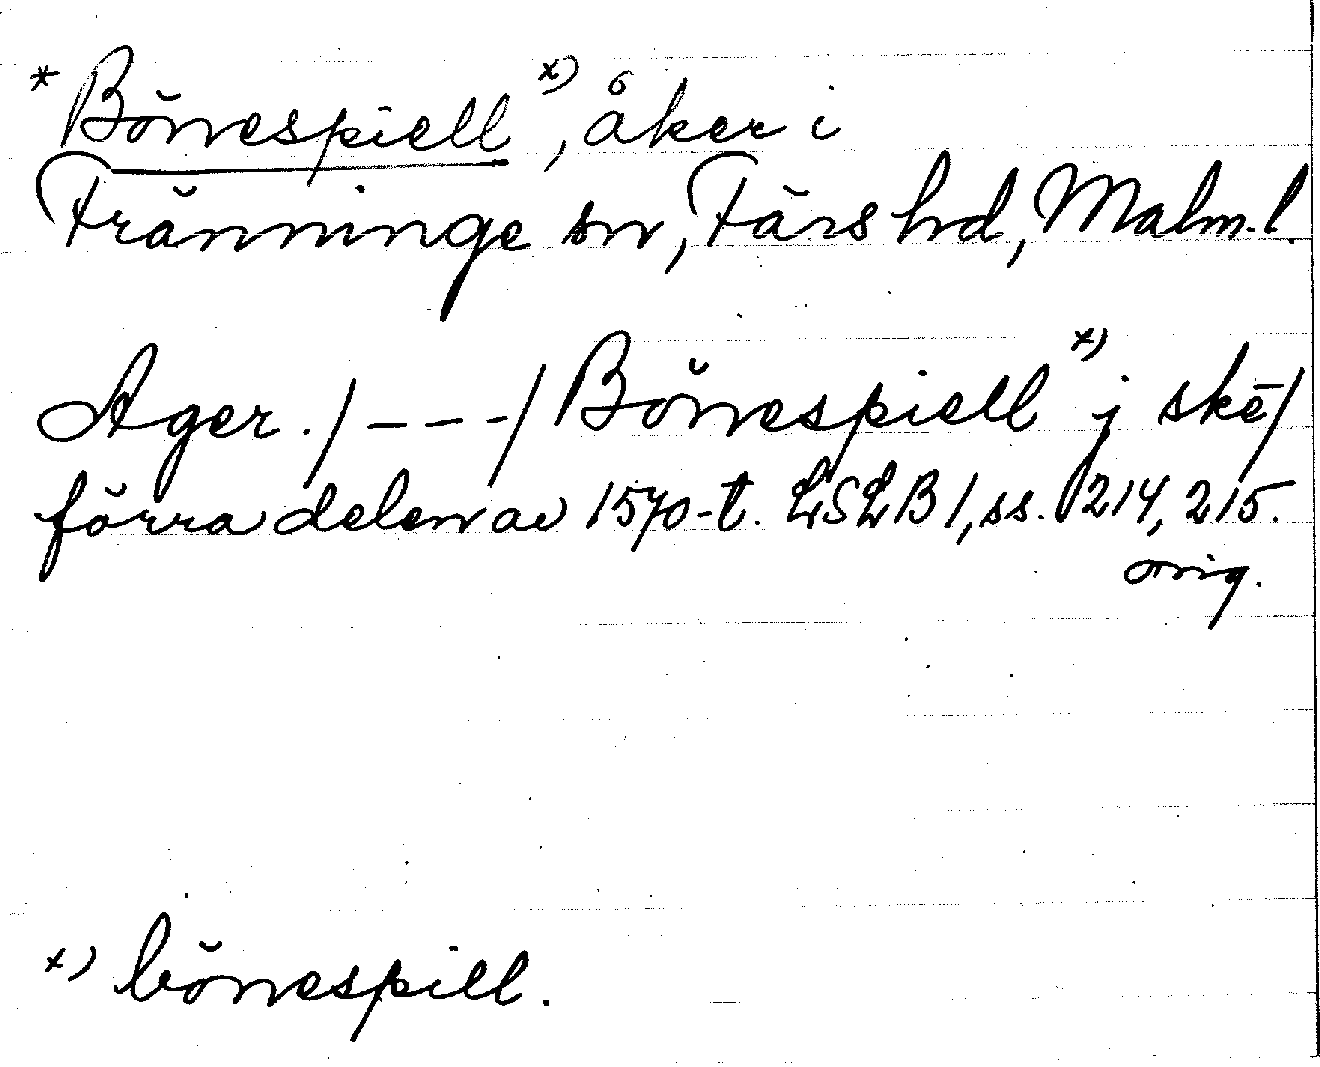 *Bönespiell x), åker i
Fränninge sn, Färs hd, Malm. l.
Ager. / – – – / Bönespiell x) j skē /
förra delen av 1570-t. LSLB 1, ss. 214, 215.
orig.
x) bönespill.